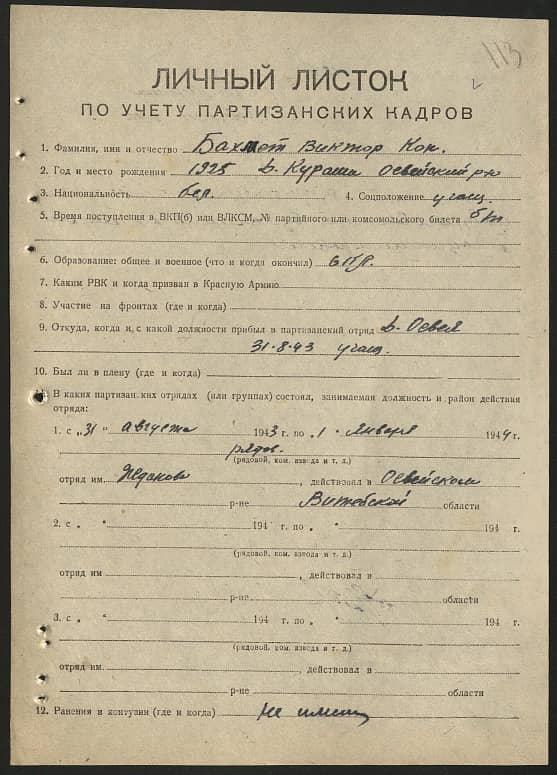 113
ЛИЧНЫЙ ЛИСТОК
ПО УЧЕТУ ПАРТИЗАНСКИХ КАДРОВ
1. Фамилия, имя и отчество Бахмет Виктор Кон.
2. Год и место рождения 1925 д. Кураши Освейский р-н
3. Национальность бел. 4. Соцположение учащ.
5. Время поступления в ВКП(б) или ВЛКСМ, № партийного или комсомольского билета б/п
6. Образование: общее и военное (что и когда окончил)
7. Каким РВК и когда призван в Красную Армию
8. Участие на фронтах (где и когда)
9. Откуда, когда и с какой должности прибыл в партизанский отряд д. Освея
31-8-43 учащ.
10. Был ли в плену (где и когда)
11. В каких партизанских отрядах (или группах) состоял, занимаемая должность и район действия
отряда:
1. с „31" августа 1943 г. по „1" января 1944 г.
рядов.
(рядовой, ком. взвода и т. д.)
отряд им , действовал в Освейском
р-не Витебской области
2. с „ " 194 г. по „ " 194 г.
(рядовой, ком. взвода и т. д.)
отряд им , действовал в
р-не области
3. с „ " 194 г. по „ " 194 г.
(рядовой, ком. взвода и т. д.)
отряд им , действовал в
р-не области
12. Ранения и контузии (где и когда) не имеет